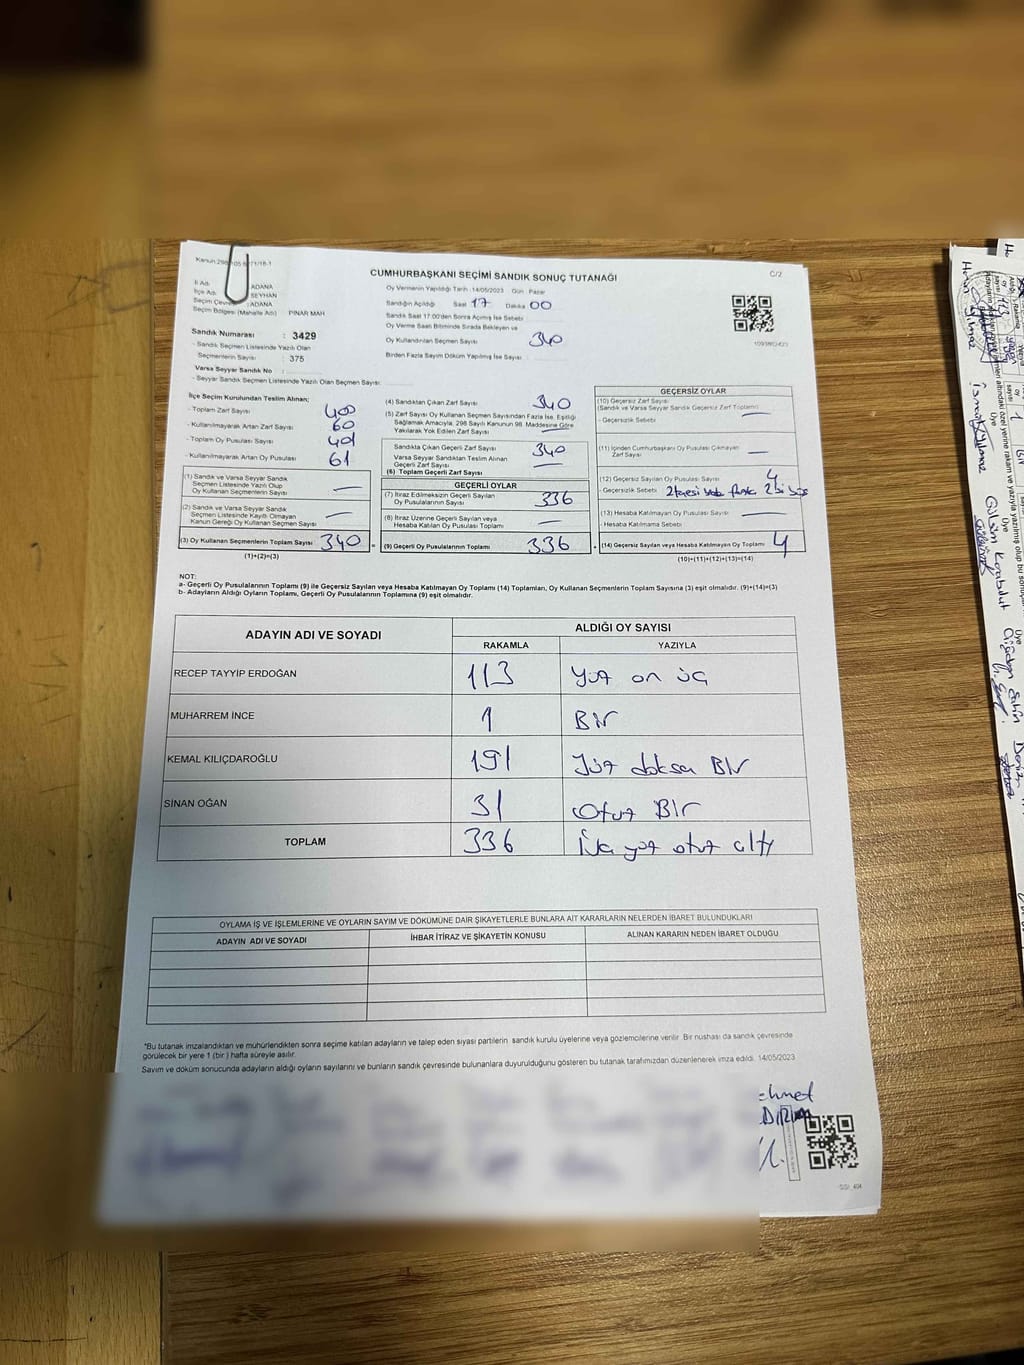 CUMHURBAŞKANI SEÇİMİ SANDIK SONUÇ TUTANAĞI
C/2
İl Adı : ADANA
İlçe Adı : SEYHAN
Seçim Çevresi : ADANA
Seçim Bölgesi (Mahalle Adı) PINAR MAH
Sandık Numarası : 3429
- Sandık Seçmen Listesinde Yazılı Olan
Seçmenlerin Sayısı : 375
Varsa Seyyar Sandık No :
- Seyyar Sandık Seçmen Listesinde Yazılı Olan Seçmen Sayısı:
Oy Vermenin Yapıldığı Tarih :14/05/2023 Gün : Pazar
Sandığın Açıldığı Saat 17 Dakika 00
Sandık Saat 17:00'den Sonra Açılmış İse Sebebi
Oy Verme Saati Bitiminde Sırada Bekleyen ve
Oy Kullandırılan Seçmen Sayısı 340
Birden Fazla Sayım Döküm Yapılmış İse Sayısı
İlçe Seçim Kurulundan Teslim Alınan;
- Toplam Zarf Sayısı 400
- Kullanılmayarak Artan Zarf Sayısı 60
- Toplam Oy Pusulası Sayısı 401
- Kullanılmayarak Artan Oy Pusulası 61
(1) Sandık ve Varsa Seyyar Sandık
Seçmen Listesinde Yazılı Olup
Oy Kullanan Seçmenlerin Sayısı —
(2) Sandık ve Varsa Seyyar Sandık
Seçmen Listesinde Kayıtlı Olmayan
Kanun Gereği Oy Kullanan Seçmen Sayısı —
(3) Oy Kullanan Seçmenlerin Toplam Sayısı 340
(1)+(2)=(3)
(4) Sandıktan Çıkan Zarf Sayısı 340
(5) Zarf Sayısı Oy Kullanan Seçmen Sayısından Fazla İse, Eşitliği
Sağlamak Amacıyla, 298 Sayılı Kanunun 98. Maddesine Göre
Yakılarak Yok Edilen Zarf Sayısı —
Sandıkta Çıkan Geçerli Zarf Sayısı 340
Varsa Seyyar Sandıktan Teslim Alınan
Geçerli Zarf Sayısı —
(6) Toplam Geçerli Zarf Sayısı
GEÇERLİ OYLAR
(7) İtiraz Edilmeksizin Geçerli Sayılan
Oy Pusulalarının Sayısı 336
(8) İtiraz Üzerine Geçerli Sayılan veya
Hesaba Katılan Oy Pusulası Toplamı —
(9) Geçerli Oy Pusulalarının Toplamı 336
GEÇERSİZ OYLAR
(10) Geçersiz Zarf Sayısı
(Sandık ve Varsa Seyyar Sandık Geçersiz Zarf Toplamı) —
- Geçersizlik Sebebi
(11) İçinden Cumhurbaşkanı Oy Pusulası Çıkmayan
Zarf Sayısı —
(12) Geçersiz Sayılan Oy Pusulası Sayısı 4
- Geçersizlik Sebebi
(13) Hesaba Katılmayan Oy Pusulası Sayısı —
- Hesaba Katılmama Sebebi
(14) Geçersiz Sayılan veya Hesaba Katılmayan Oy Toplamı 4
(10)+(11)+(12)+(13)=(14)
NOT:
a- Geçerli Oy Pusulalarının Toplamı (9) ile Geçersiz Sayılan veya Hesaba Katılmayan Oy Toplamı (14) Toplamları, Oy Kullanan Seçmenlerin Toplam Sayısına (3) eşit olmalıdır. (9)+(14)=(3)
b- Adayların Aldığı Oyların Toplamı, Geçerli Oy Pusulalarının Toplamına (9) eşit olmalıdır.
ADAYIN ADI VE SOYADI ALDIĞI OY SAYISI
RAKAMLA YAZIYLA
RECEP TAYYİP ERDOĞAN 113 Yüz on üç
MUHARREM İNCE 1 Bir
KEMAL KILIÇDAROĞLU 191 Yüz doksa Bir
SİNAN OĞAN 31 Otuz Bir
TOPLAM 336 İki yüz otuz altı
OYLAMA İŞ VE İŞLEMLERİNE VE OYLARIN SAYIM VE DÖKÜMÜNE DAİR ŞİKAYETLERLE BUNLARA AİT KARARLARIN NELERDEN İBARET BULUNDUKLARI
ADAYIN ADI VE SOYADI İHBAR İTİRAZ VE ŞİKAYETİN KONUSU ALINAN KARARIN NEDEN İBARET OLDUĞU
*Bu tutanak imzalandıktan ve mühürlendikten sonra seçime katılan adayların ve talep eden siyasi partilerin sandık kurulu üyelerine veya gözlemcilerine verilir. Bir nüshası da sandık çevresinde
görülecek bir yere 1 (bir ) hafta süreyle asılır.
Sayım ve döküm sonucunda adayların aldığı oyların sayılarını ve bunların sandık çevresinde bulunanlara duyurulduğunu gösteren bu tutanak tarafımızdan düzenlenerek imza edildi. 14/05/2023